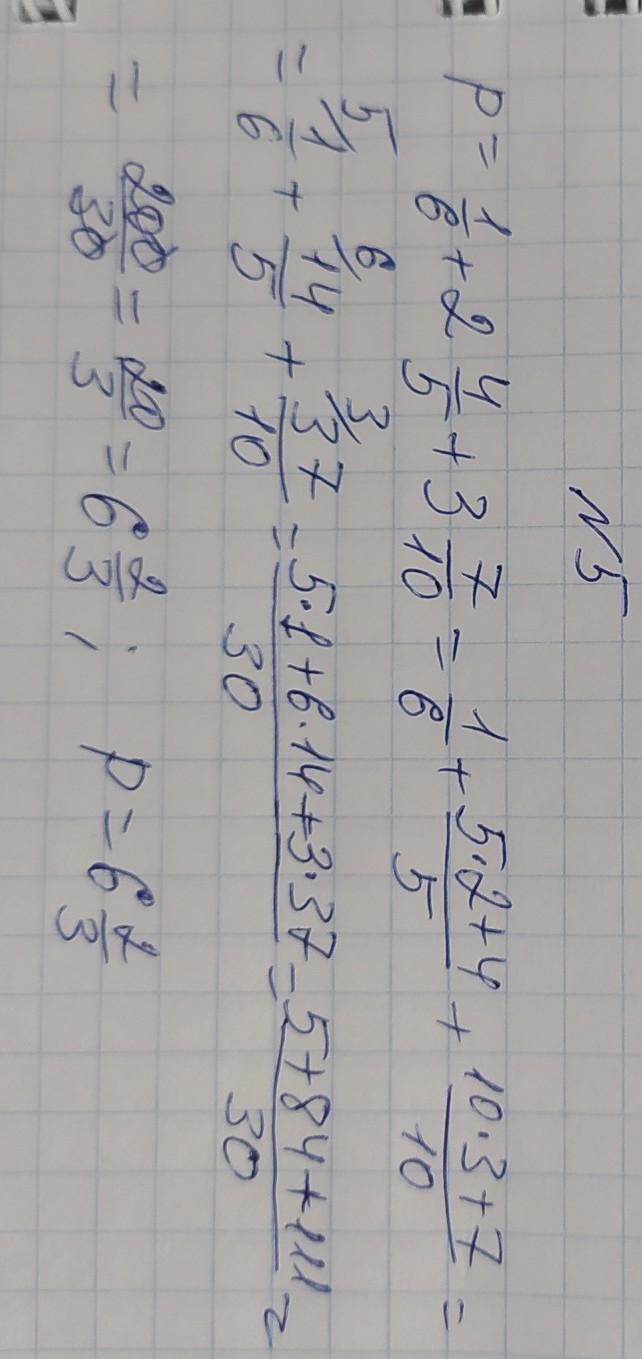 N5
p = 1/6 + 2 4/5 + 3 7/10 = 1/6 + (5·2+4)/5 + (10·3+7)/10 =
= 5/ 1/6 + 6/ 14/5 + 3/ 37/10 = (5·1+6·14+3·37)/30 = (5+84+111)/30 =
= 200/30 = 20/3 = 6 2/3 ; p = 6 2/3